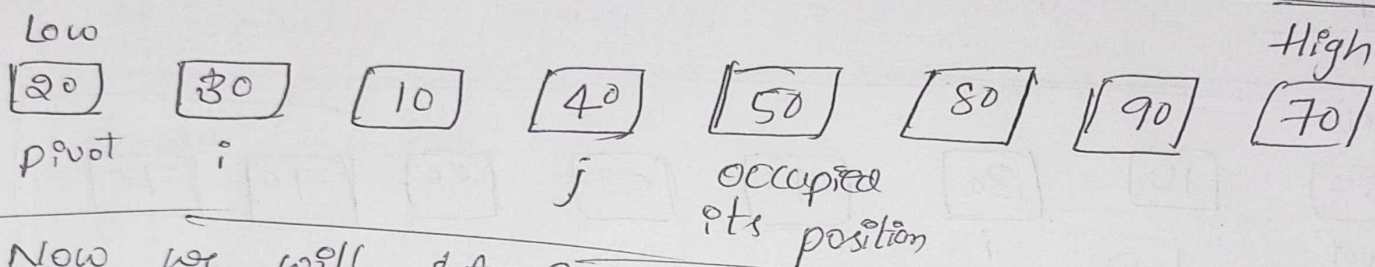 Low High
20 30 10 40 50 80 90 70
pivot i j occupied
its position
Now we will